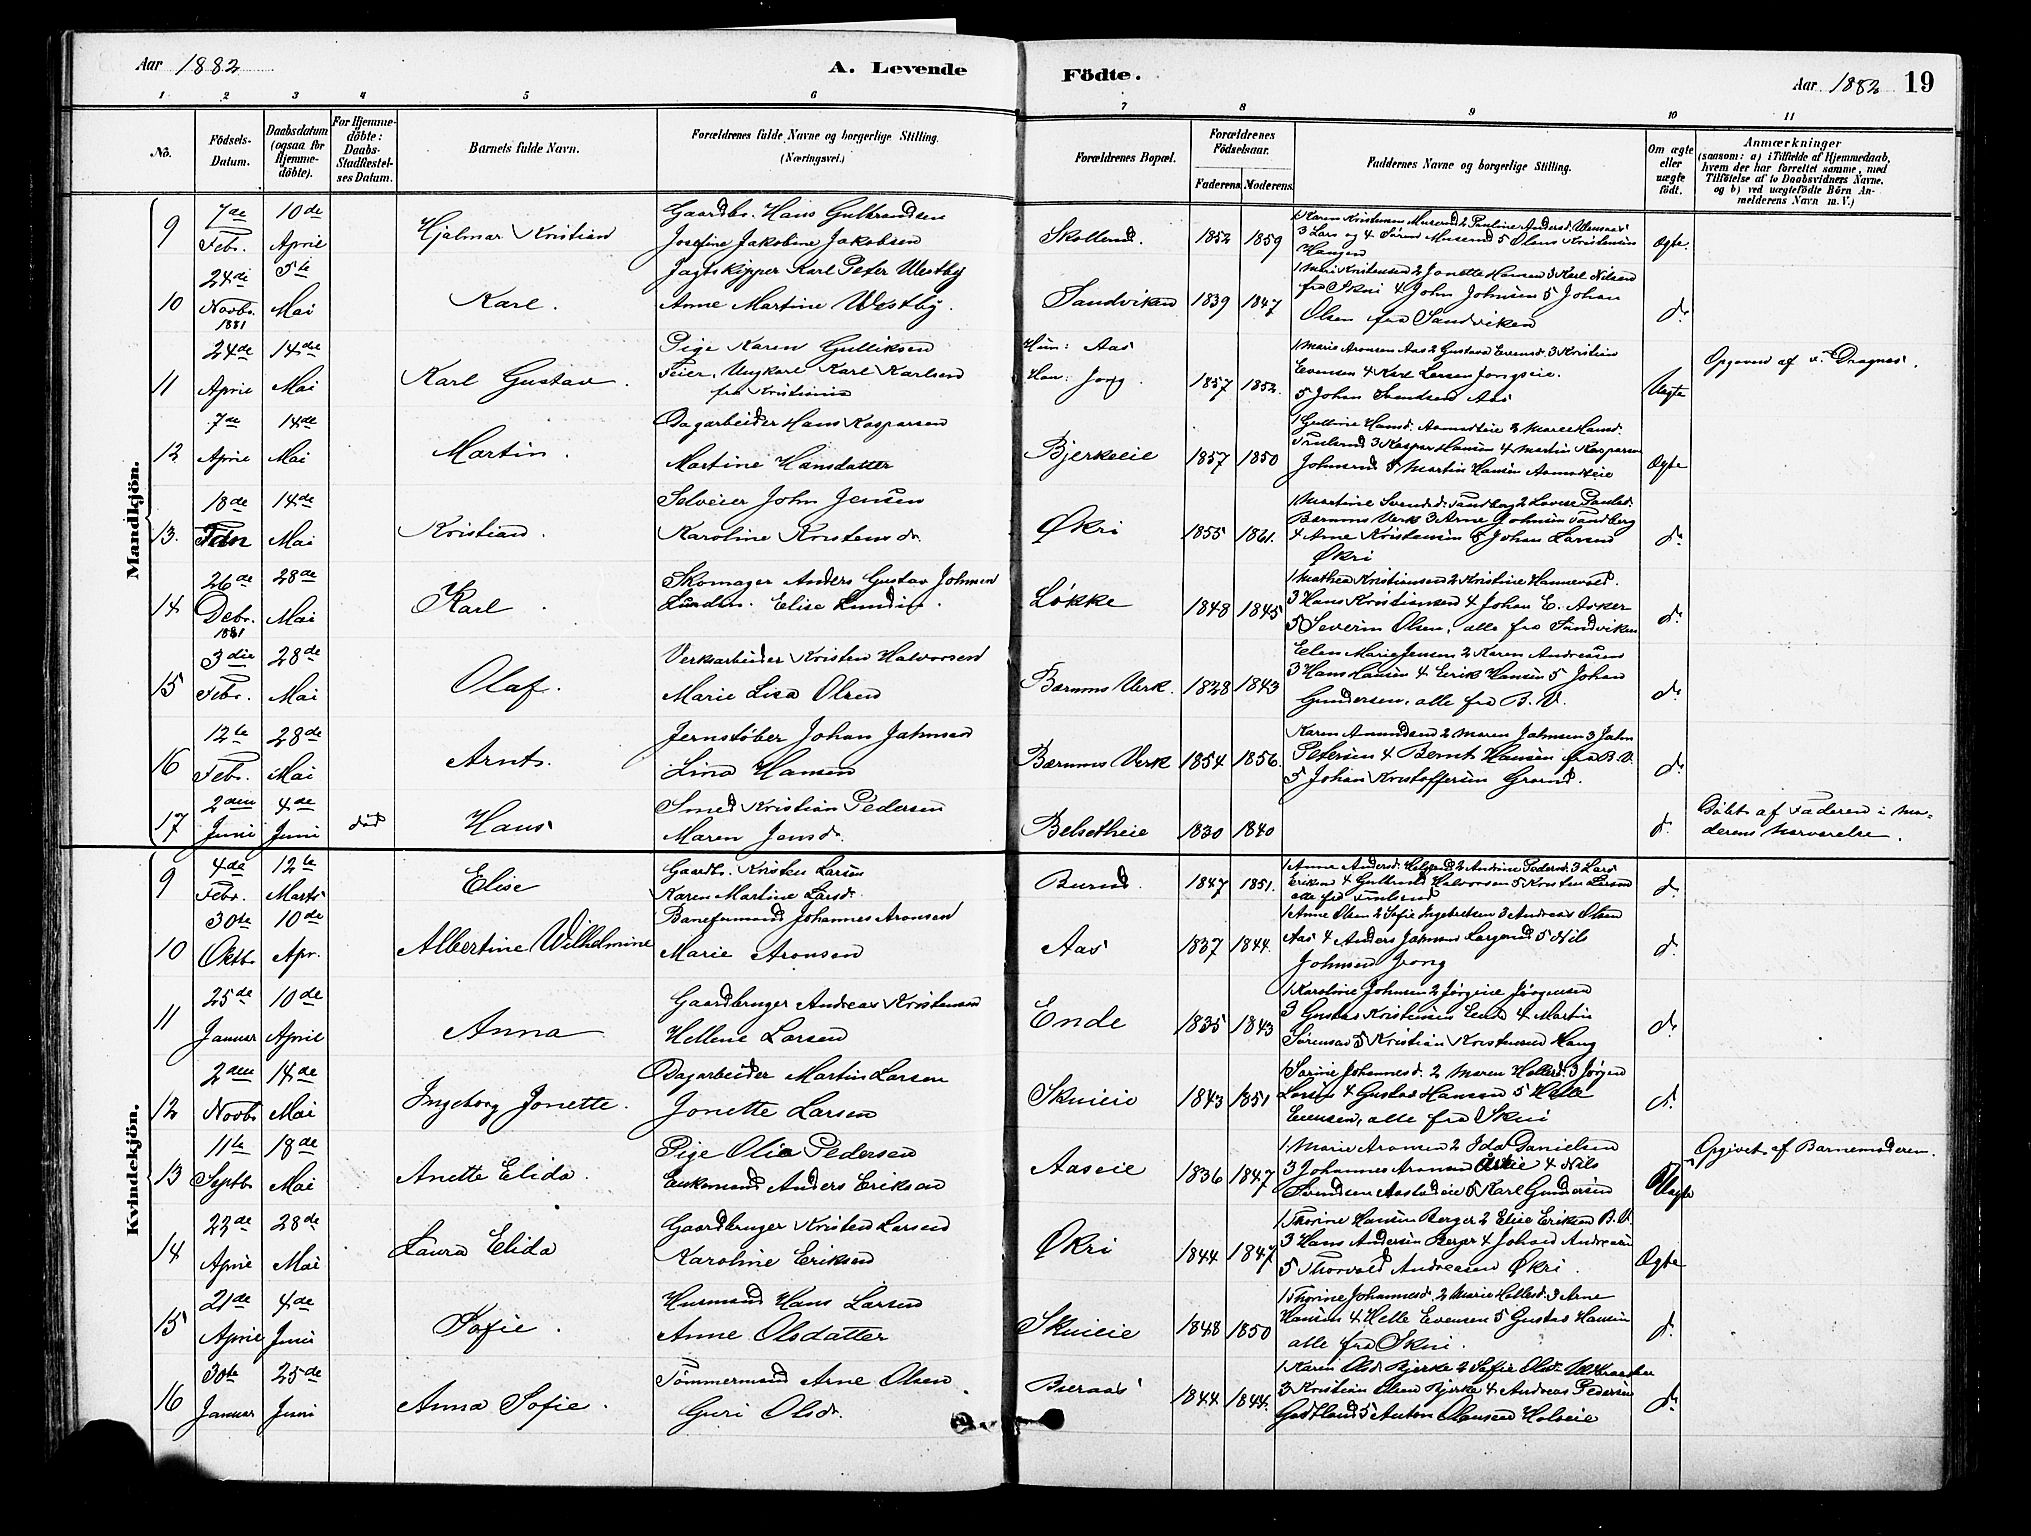 Aar 1882
A. Levende
Födte.
Aar 1882
19
1 2 3 4 5 6 7 8 9 10 11
No.
Födsels-Datum.
Daabsdatum (ogsaa for Hjemme-döbte).
For Hjemme-döbte: Daabs-Stadfæstel-ses Datum.
Barnets fulde Navn.
Forældrenes fulde Navne og borgerlige Stilling.
(Næringsvei.)
Forældrenes Bopæl.
Forældrenes Födselsaar.
Faderens Moderens.
Faddernes Navne og borgerlige Stilling.
Om ægte eller uægte födt.
Anmærkninger
(saasom: a) i Tilfælde af Hjemmedaab,
hvem der har forrettet samme, med
Tilföielse af to Daabsvidners Navne,
og b) ved uægtefödte Börn An-
melderens Navn m. V.)
Mandkjön.
9 7de Febr. 10de April Hjalmar Kristian
Gaardbr. Hans Gulbrandsen
Josefine Jakobine Jakobsen
Skollerud. 1852 1859
Ægte.
10 24de Novbr. 1881 5te Mai Karl.
Jagtskipper Karl Peter Westby
Anne Martine Westby.
Sandviken 1839 1847
1 Mari Kristensen 2 Jonette Hansen 3 Karl Nilsen
fra Skui 4 John Johnsen 5 Johan
Olsen fra Sandviken
do
11 24de April 14de Mai Karl Gustav.
Pige Karen Gulliksen
Feier, Ungkarl Karl Karlsen
fra Kristiania
Hun: Aas
Han: Jong. 1857 1852.
1 Marie Aronsen Aas 2 Gustava Evensd. 3 Kristian
Evensen 4 Karl Larsen Jongseie.
5 Johan Svendsen Aas
Uægte
Opgiven af v. Dragnes.
12 7de April 14de Mai Martin.
Dagarbeider Hans Kaspersen
Martine Hansdatter
Bjerkeeie 1857 1850
3 Kaspar Hansen 4 Martin Kaspersen
Johnsrud 5 Martin Hansen
Ægte
13. 18de 14de Mai Kristian.
Selveier John Jensen
Karoline Kristensd.
Økri 1855 1861.
Bærums Verk 3 Arne Johnsen Tandberg
4 Arne Kristensen 5 Johan Larsen
Økri
do
14 26de Debr. 1881 28de Mai Karl.
Skomager Anders Gustav Johnsen
Lundin. Elise Lundin.
Løkke 1848 1845
1 Mathea Kristiansen 2 Kristine Hannevold.
3 Hans Kristiansen 4 Johan E. Asker
5 Severin Olsen, alle fra Sandviken
do
15 3die Febr. 28de Mai Olaf.
Verksarbeider Kristen Halvorsen
Marie Lisa Olsen
Bærums Verk. 1828 1843
Elen Marie Jensen 2 Karen Andreasen
3 Hans Hansen 4 Erik Hansen 5 Johan
Gundersen, alle fra B. V.
do
16 12te Febr. 28de Mai Arnt.
Jernstøber Johan Johnsen
Lina Hansen
Bærums Verk 1854 1856.
Karen Amundsen 2 Maren Johnsen 3 John
Petersen 4 Bernt Hansen fra B. V.
5 Johan Kristoffersen
do
17 2den Juni 4de Juni død Hans
Smed Kristian Pedersen
Maren Jensd.
Belsetheie 1830 1840
do
Døbt af Faderen i Mo-
derens Nærværelse.
Kvindekjön.
9 4de Febr. 12te Marts Elise
Gaardb. Kristen Larsen
Karen Martine Larsd.
Burud. 1847 1851.
do
10 30te Oktb. 10de Apr. Albertine Wilhelmine
Baneformand Johannes Aronsen
Marie Aronsen
Aas 1837 1844.
1 Anne Olsen 2 Sofie Ingebretsen 3 Andreas Olsen
Aas 4 Anders Johnsen 5 Nils
Johnsen Jong
do
11 25de Januar 10de April Anna
Gaardbruger Andreas Kristensen
Hellene Larsen
Ende 1835 1843
1 Karoline Johnsen 2 Jørgine Jørgensen
3 Gustav Kristensen Ende 4 Martin
Sørensen 5 Kristian Kristensen Haug
do
12 2den Novb. 14de Mai Ingeborg Jonette.
Dagarbeider Martin Larsen
Jonette Larsen
Skuieie 1843 1851
1 Sarine Johannesd. 2 Maren Hellesd. 3 Jørgen
Larsen 4 Gustav Hansen 5 Helle
Evensen, alle fra Skui
do
13 11te Septb. 18de Mai Anette Elida.
Pige Olia Pedersen
Enkemand Anders Eriksen
Aaseie 1836 1847
1 Marie Aronsen 2 Ida Danielsen
3 Johannes Aronsen 4 Nils
Svendsen 5 Karl Gundersen
Uægte
Opgivet af Barnemoderen.
14 22de April 28de Mai Laura Elida
Gaardbruger Kristen Larsen
Karoline Eriksen
Økri 1844 1847
1 Thorine Hansen Berger 2 Elise Eriksen B. V.
3 Hans Andersen Berger 4 Johan Andreasen
5 Thorvald Andreasen Økri.
Ægte
15 21de April 4de Juni Sofie.
Husmand Hans Larsen
Anne Olsdatter
Skuieie 1848 1850
1 Thorine Johannesd. 2 Marie Hellesd. 3 Arne
Hansen 4 Helle Evensen 5 Gustav Hansen
alle fra Skui.
do
16 30te Januar 25de Juni Anna Sofie.
Tømmermand Arne Olsen.
Guri Olsdr.
Bueraas 1844 1844.
1 Karen Olsd. Bjerke 2 Sofie Olsd.
3 Kristian Olsen Bjerke 4 Andreas Pedersen
5 Anton
do